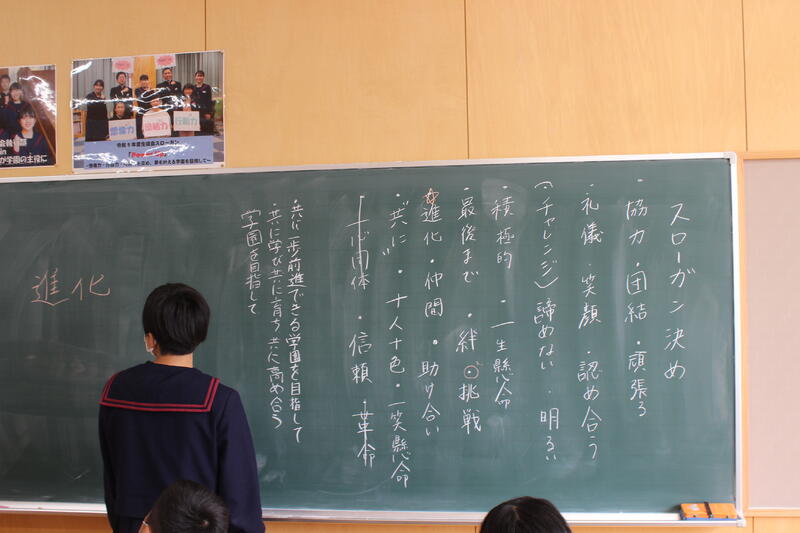 スローガン決め
・協力・団結・頑張る
・礼儀・笑顔・認め合う
(チャレンジ)諦めない・明るい
・積極的・一生懸命
・最後まで・絆・挑戦
☆進化・仲間・助け合い
・共に・十人十色・一笑懸命
・一心同体・信頼・革命
・共に一歩前進できる学園を目指して
・共に学び共に育ち共に高め合う
学園を目指して
進化
想像力
団結力
行動力
令和5年度生徒会スローガン
が学園の主役に